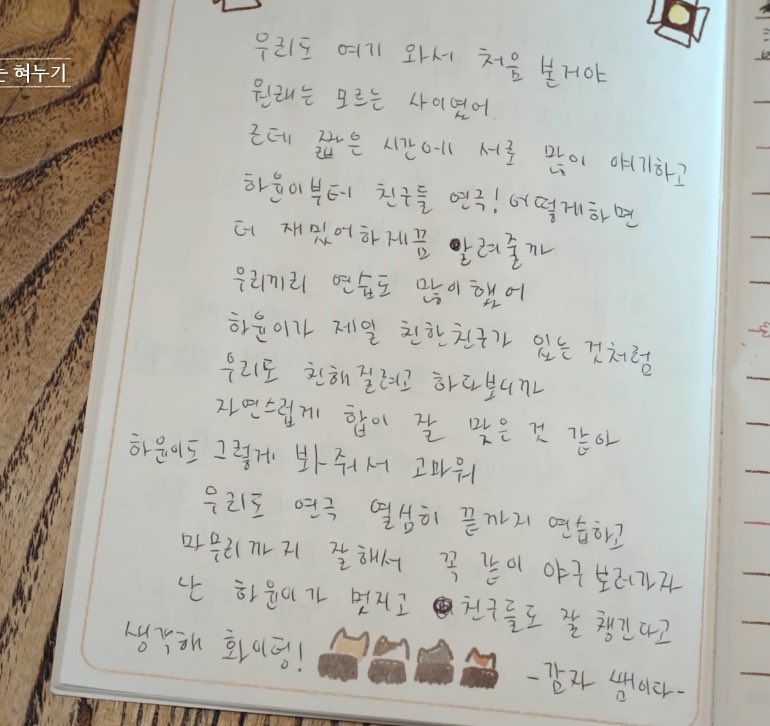 는 혀누기
우리도 여기 와서 처음 본거야
원래는 모르는 사이였어
근데 짧은 시간에 서로 많이 얘기하고
하윤이부터 친구들 연극! 어떻게하면
더 재밌어하게끔 알려줄까
우리끼리 연습도 많이했어
하윤이가 제일 친한친구가 있는 것처럼
우리도 친해질려고 하다보니까
자연스럽게 합이 잘 맞은 것 같아
하윤이도 그렇게 봐줘서 고마워
우리도 연극 열심히 끝까지 연습하고
마무리까지 잘해서 꼭 같이 야구보러가자
난 하윤이가 멋지고 친구들도 잘 챙긴다고
생각해 화이팅!
-감자 쌤이다-